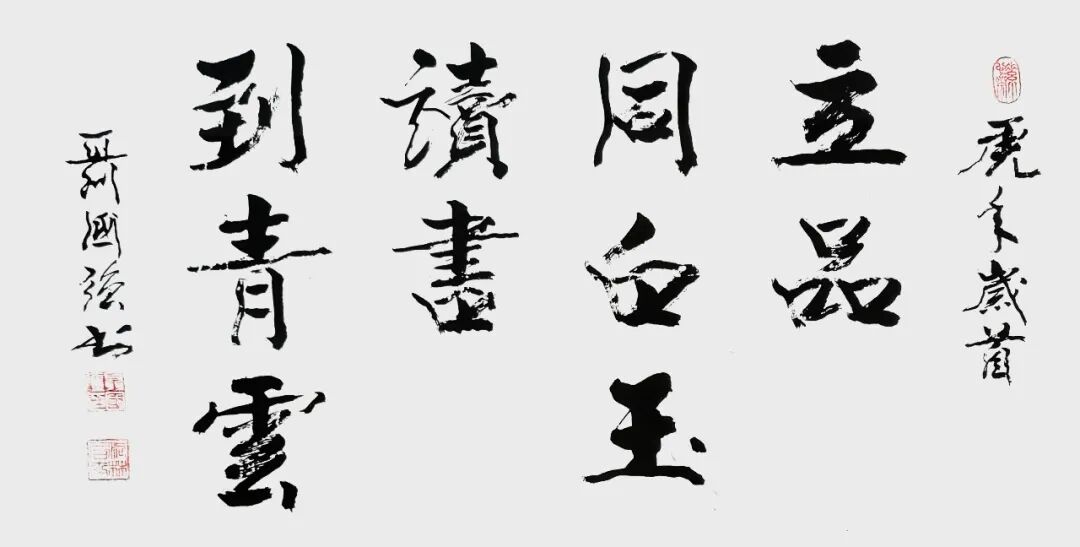 虎年歲首
立品
同白玉
讀書
到青雲
聶國強书